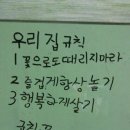 우리 집 규칙
1 꽃으로도 때리지마라
2 즐겁게항상놀기
3 행복하게살기
규칙 끝